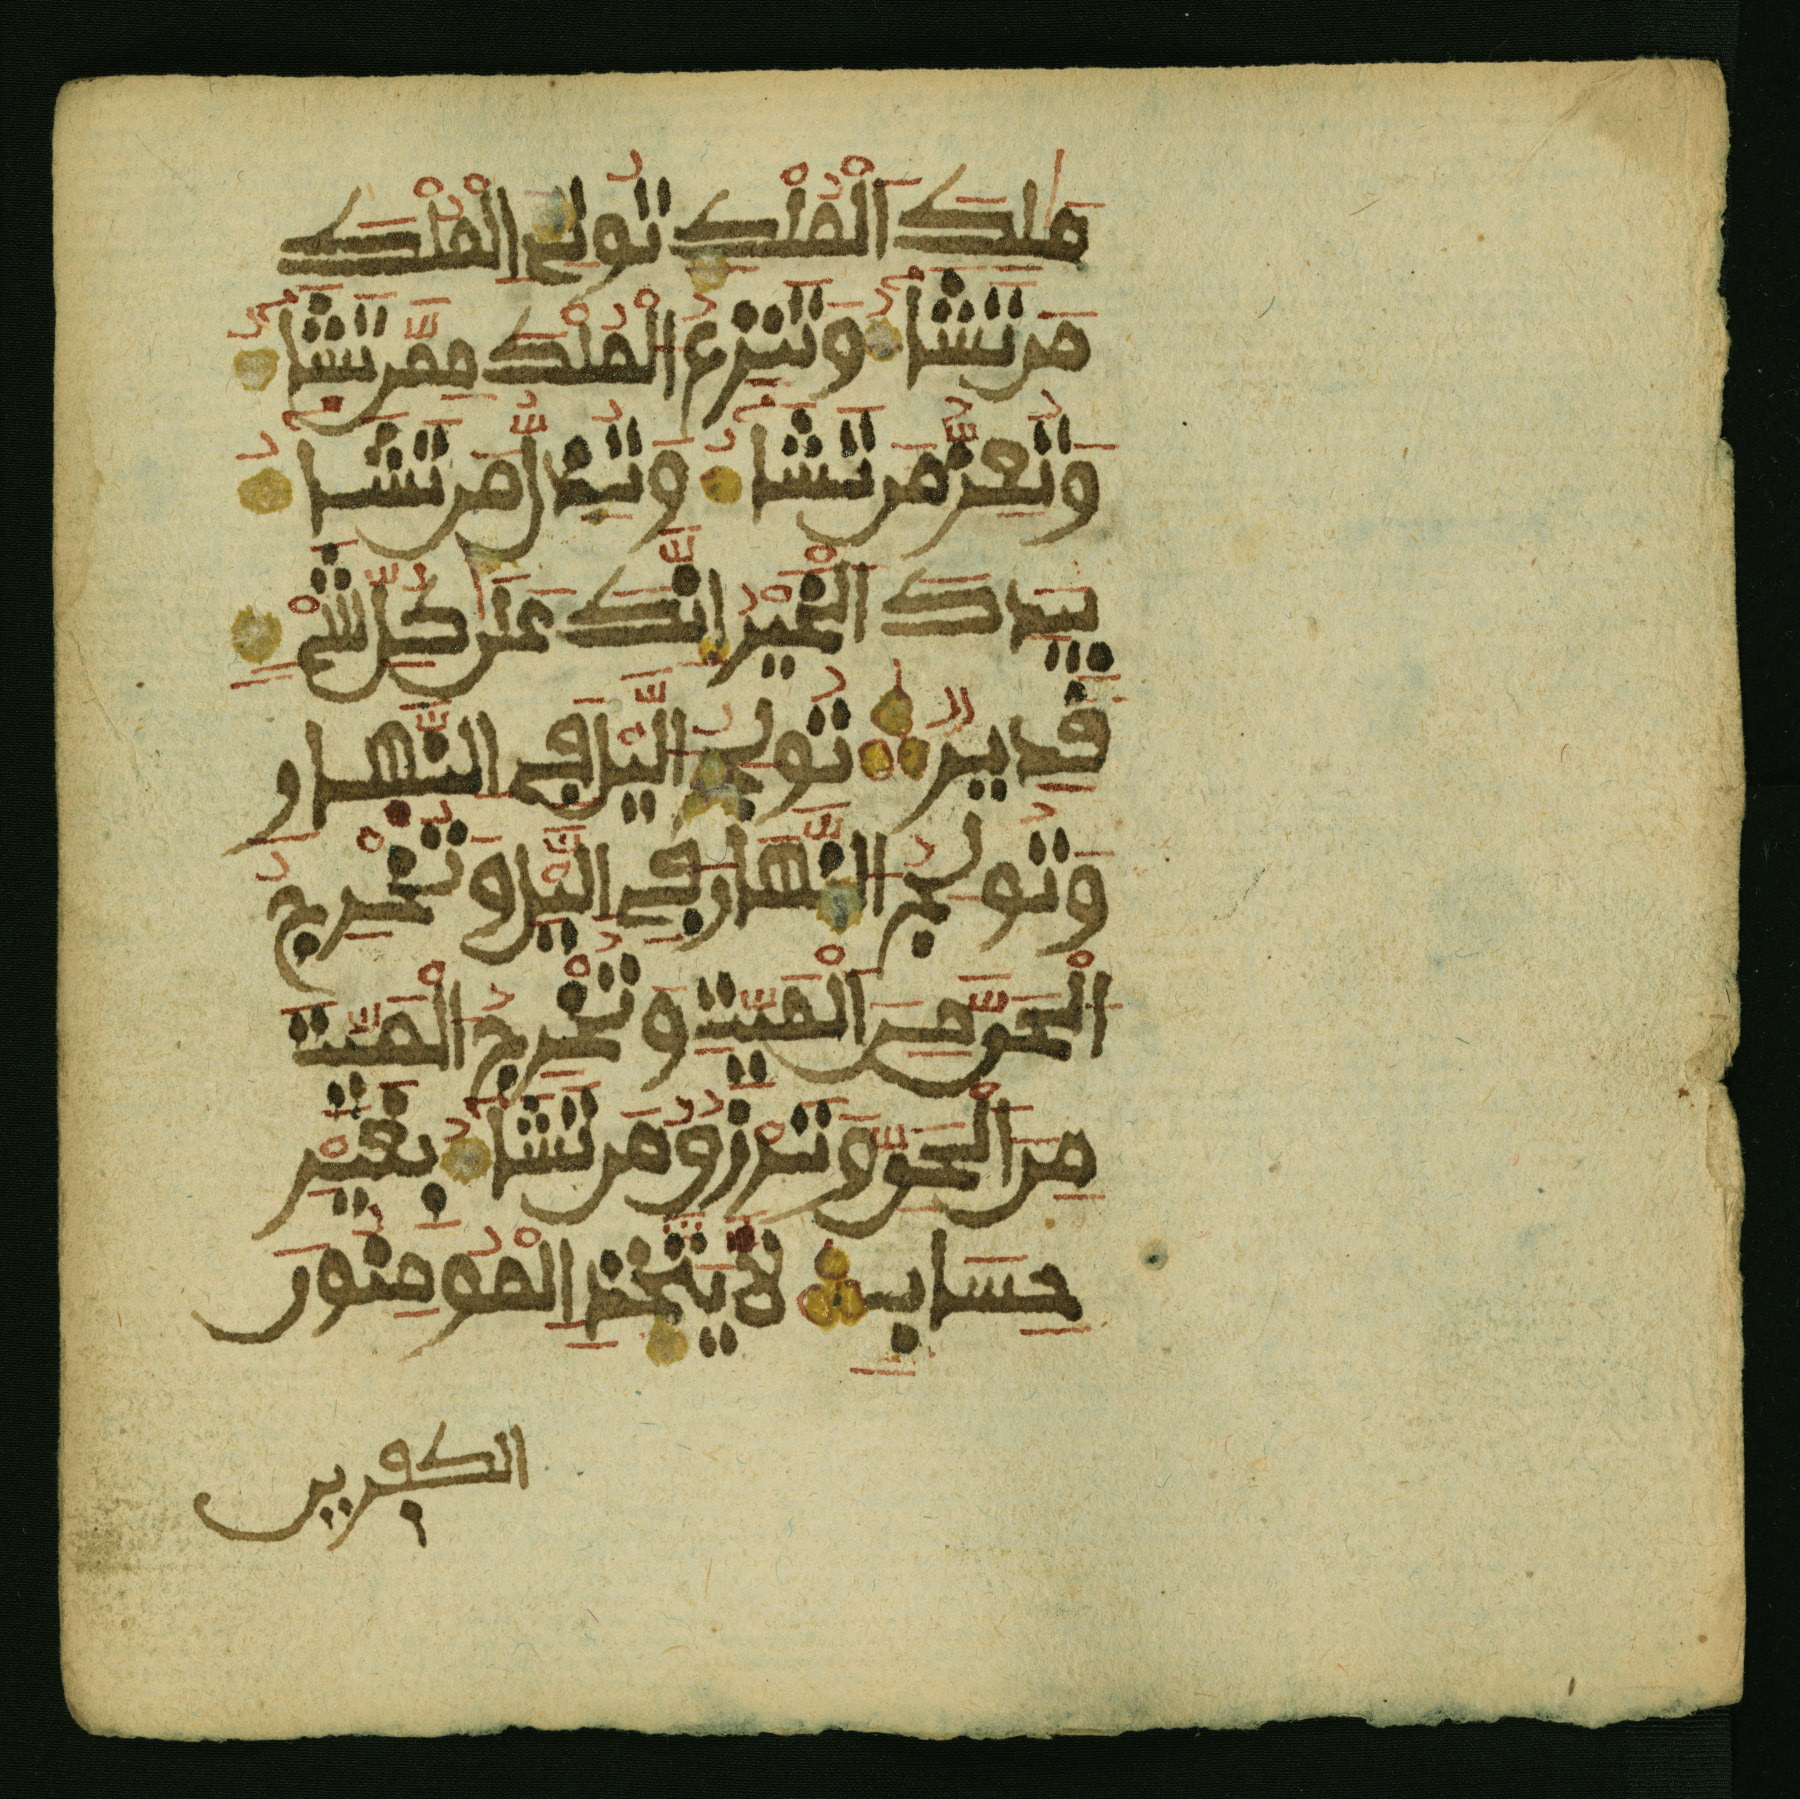 مَٰلِكَ الْمُلْكِ تُوتِے الْمُلْكَ
مَن تَشَآءُ وَتَنزِعُ الْمُلْكَ مِمَّن تَشَآءُ
وَتُعِزُّ مَن تَشَآءُ وَتُذِلُّ مَن تَشَآءُ
بِيَدِكَ الْخَيْرُ إِنَّكَ عَلَىٰ كُلِّ شَيْءٍ
قَدِيرٌ تُولِجُ اليْلَ فِے النَّهارِ
وَتُولِجُ النَّهارَ فِے اليْلِ وَتُخْرِجُ
الْحَيَّ مِنَ الْمَيِّتِ وَتُخْرِجُ الْمَيِّتَ
مِنَ الْحَيِّ وَتَرْزُقُ مَن تَشَآءُ بِغَيْرِ
حِسَابٍ لَّا يَتَّخِذِ الْمُومِنُونَ
الكفرين